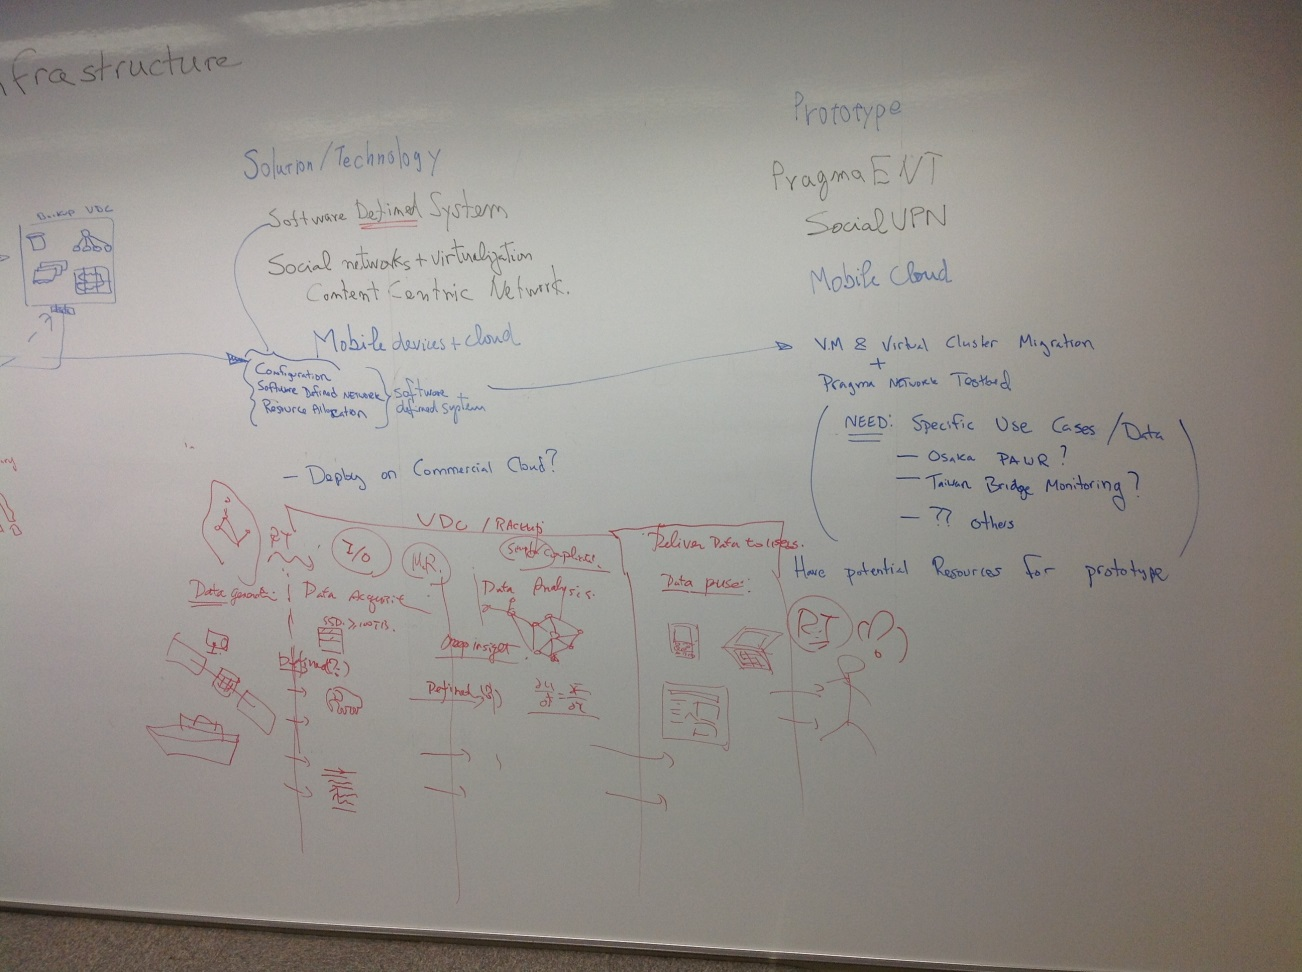 nfrastructure
Solution/Technology
Software Defined System
Social networks + virtualization
Content Centric Network.
Mobile devices + cloud
VDC
Configuration
Software Defined Network
Resource Allocation
Software +
defined system
- Deploy on Commercial Cloud?
Prototype
PragmaENT
SocialVPN
Mobile Cloud
VM & Virtual Cluster Migration
+
Pragma Network Testbed
NEED: Specific Use Cases / Data
- Osaka PAWR?
- Taiwan Bridge Monitoring?
- ?? others
Have potential Resources for prototype
VDC / Backup
Deliver Data to Users.
RT
I/O
M.R.
Data
Data
Data Analysis.
Data
SSD. ≥ 100TB.
Deep insight
RT